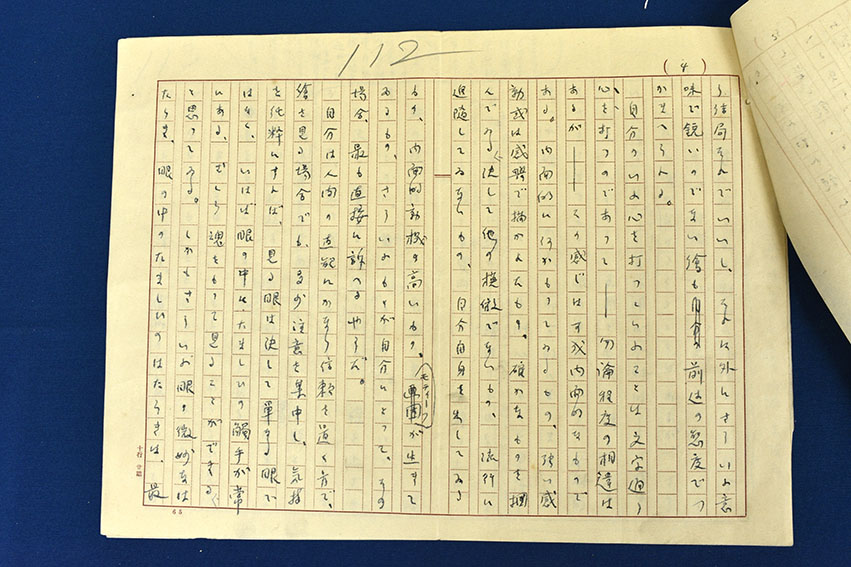 112
(4)
結局それでいいし、それは外にさういふ意
味で鋭いのでない繪も前述の態度でつ
かまへられる。
自分のいふ心を打つといふことは文字通り
心を打つのであつて——勿論程度の相違は
あるが——その感じはすべて内面的なもので
ある。内面的に何かもつてゐるもの、強い感
動或は感興で描かれたもの。確かなものを掴
んでゐる、決して他の模倣でないもの。流行に
追随してゐないもの、自分自身を出してゐる
もの、内面的動機の高いもの。モティーフが生きて
ゐるもの、さういふものが自分にとつて、その
場合、最も直接に訴へるやうだ。
自分は人間の直観にかなり信頼を置く方で、
繪を見る場合でも、多少注意を集中し、気持
を純粋にすれば、見る眼は決して単なる眼で
はなく、いはば眼の中に、たましいの觸手が常
にある、さう魂をもつて見ることができる
と思つてゐる。しかもさういふ眼の微妙なは
たらき、眼の中のたましいのはたらきは、最